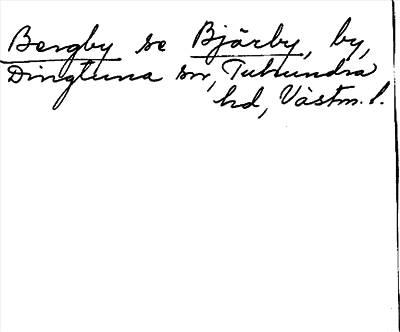 Bergby se Bjärby, by,
Dingtuna sn, Tuhundra
hd, Västm. l.